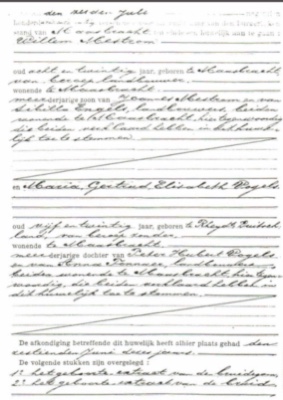 den
stang van Maasbracht
Willem Mestrom
oud acht en twintig jaar, geboren te Maasbracht
van beroep landbouwer
wonende te Maasbracht
meerderjarige zoon van Mestrom en van
Engels, landbouwers, beiden
wonende te Maasbracht, hier tegenwoordig
die beiden verklaard hebben in het huwe-
lijk toe te stemmen
en Maria Gertrud Elisabeth Vogels
oud vijf en twintig jaar, geboren te Rheydt Duitsch-
land, van beroep zonder
wonende te Maasbracht
meerderjarige dochter van Peter Hubert Vogels
en van Anna landbouwers
beiden wonende te Maasbracht, hier tegen-
woordig, die beiden verklaard hebben in
dit huwelijk toe te stemmen
De afkondiging betreffende dit huwelijk heeft alhier plaats gehad den
Juni dezes jaars
De volgende stukken zijn overgelegd:
1º het geboorte extract van de bruidegom
2º het geboorte extract van de bruid